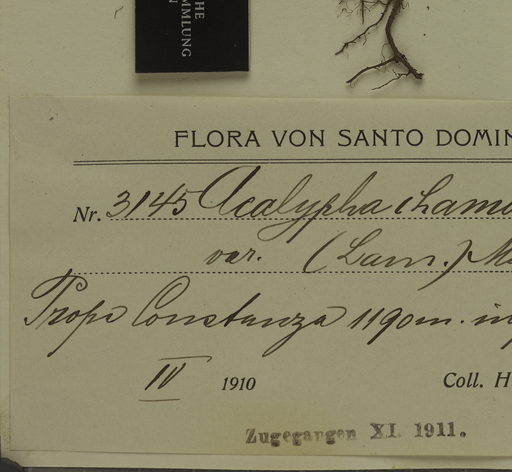 HE
MMLUNG
FLORA VON SANTO DOMIN
Nr. 3145 Acalypha chama
var. (Lam.) M
Prope Constanza 1190m. in
IV 1910
Coll. H
Zugegangen XI. 1911.